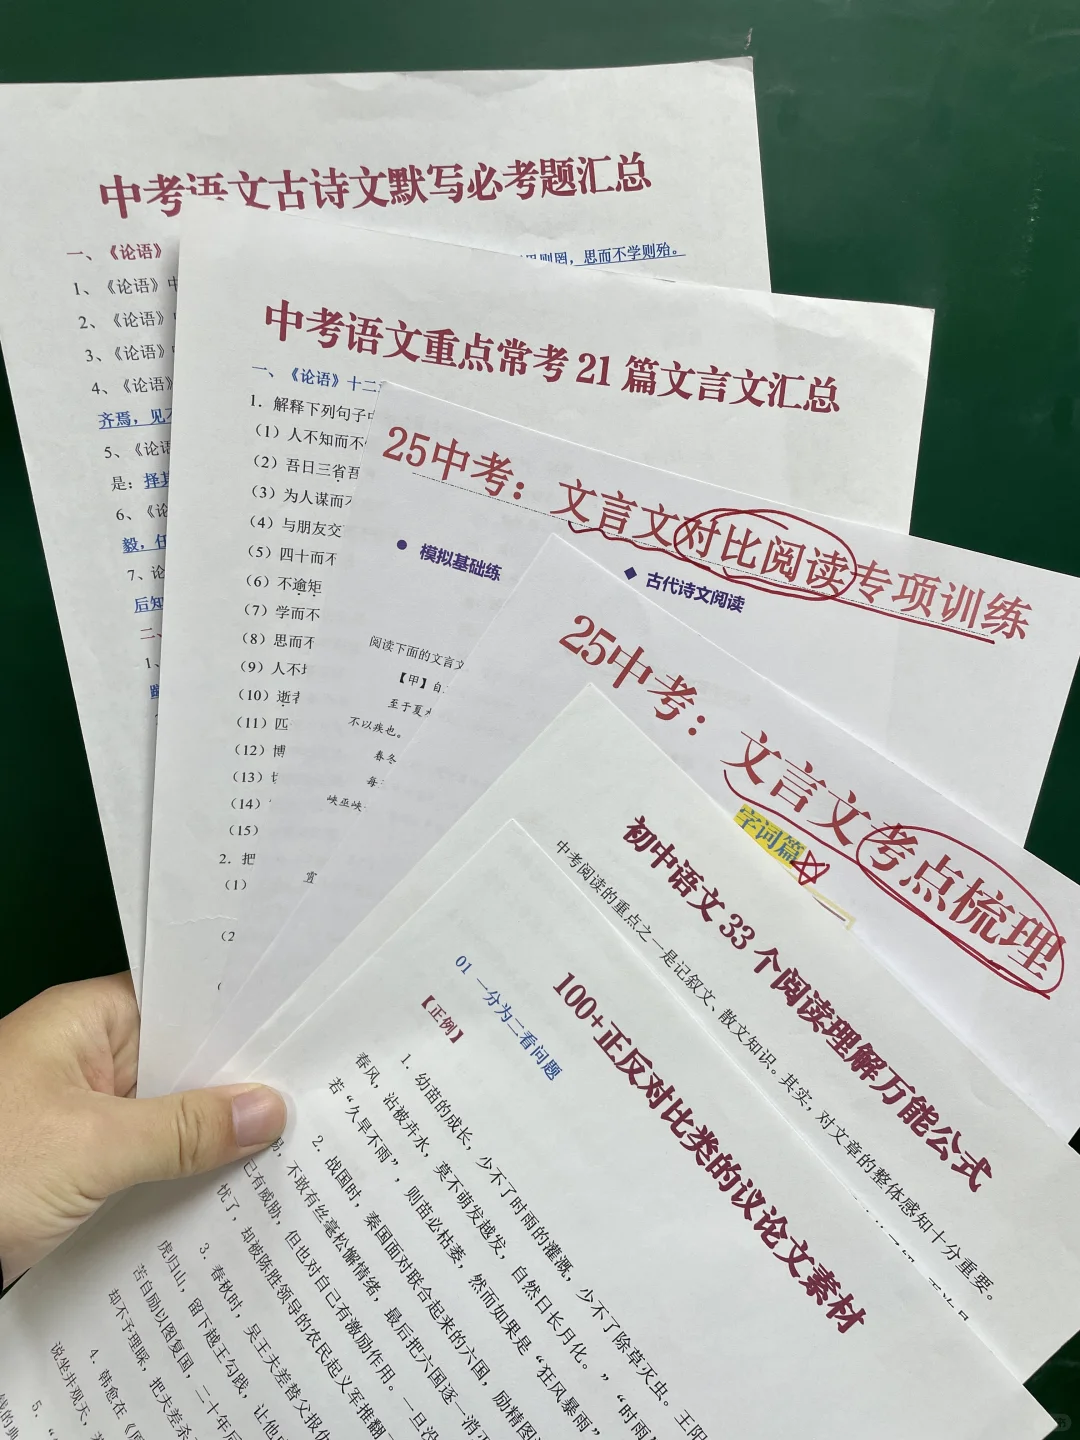 中考语文古诗文默写必考题汇总
一、《论语》
则罔，思而不学则殆。
1、《论语》
2、《论语》
3、《论语》
4、《论语》
齐焉，见不
5、《论语
是：择其
6、《论
毅，任
7、论
后知
二、
1、
中考语文重点常考21篇文言文汇总
一、《论语》十二
1. 解释下列句子中
（1）人不知而不
（2）吾日三省吾
（3）为人谋而不
（4）与朋友交
（5）四十而不
（6）不逾矩
（7）学而不
（8）思而不
（9）人不堪
（10）逝者
（11）匹
（12）博
（13）切
（14）
（15）
2. 把
（1）
（2
25中考：文言文对比阅读专项训练
● 模拟基础练
◆ 古代诗文阅读
阅读下面的文言文
【甲】自
至于夏水
不以疾也。
春冬
每
峡巫峡
25中考：文言文考点梳理
字词篇
初中语文33个阅读理解万能公式
中考阅读的重点之一是记叙文、散文知识。其实，对文章的整体感知十分重要。
100+正反对比类的议论文素材
01 一分为二看问题
【正例】
1. 幼苗的成长，少不了时雨的灌溉，少不了除草灭虫。王阳
春风，沾被卉木，莫不萌发越发，自然日长月化。”“时雨
若“久旱不雨”，则苗必枯萎，然而如果是“狂风暴雨”
2. 战国时，秦国面对联合起来的六国，励精图
惕，不敢有丝毫松懈情绪，最后把六国逐一消灭
己有威胁，但也对自己有激励作用。一旦没
忧了，却被陈胜领导的农民起义军推翻了
3. 春秋时，吴王夫差替父报仇
虎归山，留下越王勾践，让他
苦自励以图复国，二十年后
却不予理睬，把夫差杀
4. 韩愈在《原
说坐井观天，
5. “
钱的典